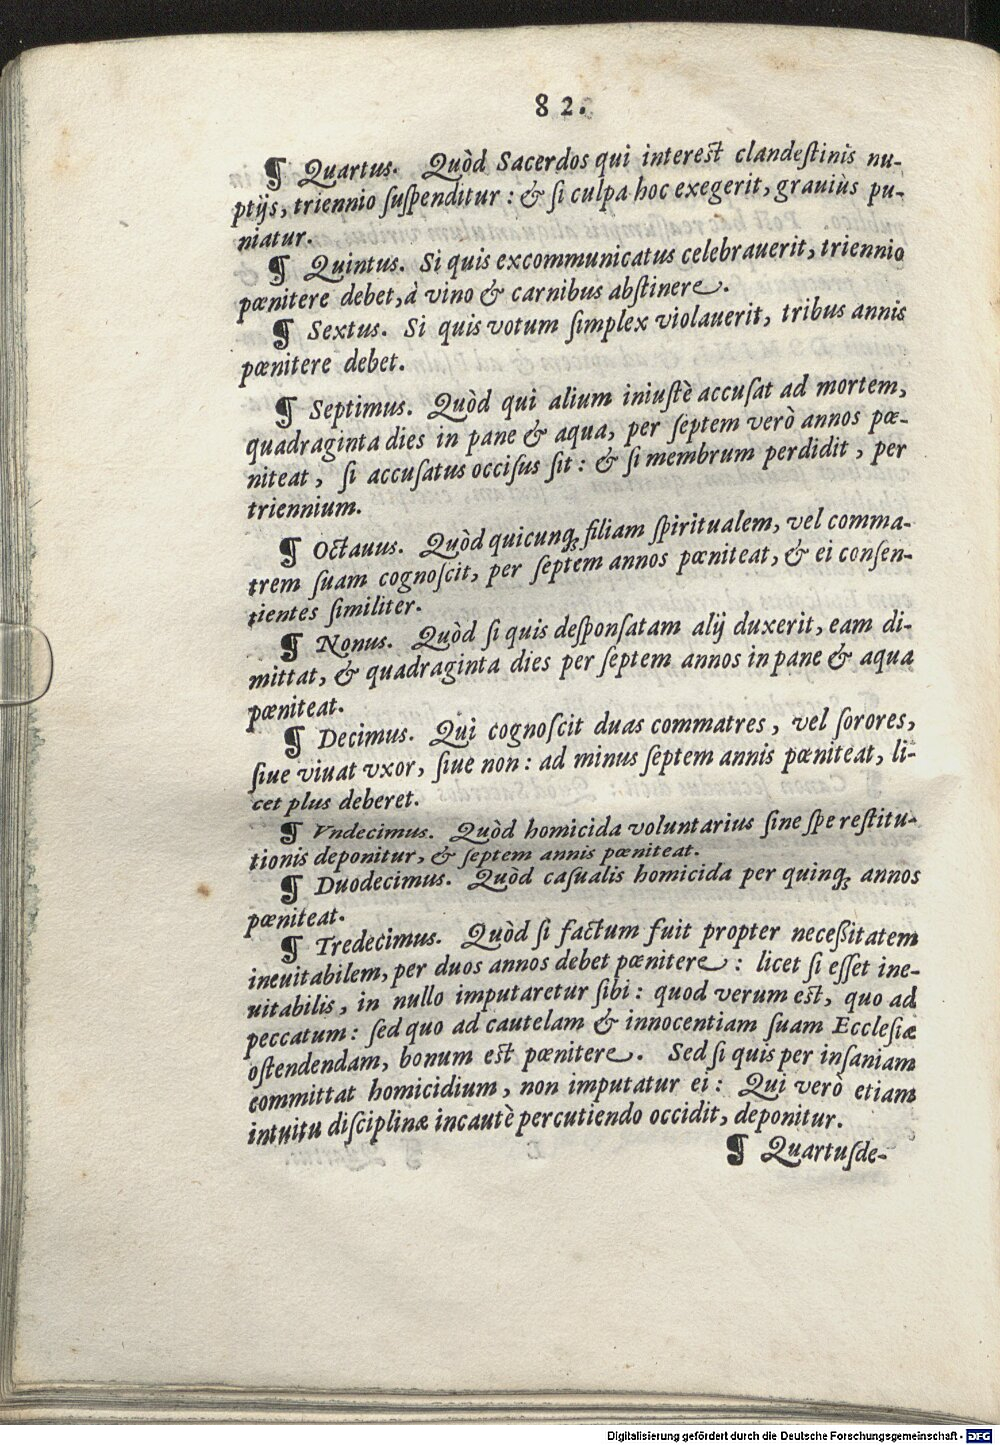 82.
¶ Quartus. Quòd Sacerdos qui interest clandeſtinis nu-
ptijs, triennio ſuſpenditur: & ſi culpa hoc exegerit, grauiùs pu-
niatur.
¶ Quintus. Si quis excommunicatus celebrauerit, triennio
pœnitere debet, à vino & carnibus abſtinere.
¶ Sextus. Si quis votum ſimplex violauerit, tribus annis
pœnitere debet.
¶ Septimus. Quòd qui alium iniuſtè accuſat ad mortem,
quadraginta dies in pane & aqua, per ſeptem verò annos pœ-
niteat, ſi accuſatus occiſus ſit: & ſi membrum perdidit, per
triennium.
¶ Octauus. Quòd quicunq; filiam ſpiritualem, vel comma-
trem ſuam cognoſcit, per ſeptem annos pœniteat, & ei conſen-
tientes ſimiliter.
¶ Nonus. Quòd ſi quis deſponſatam alij duxerit, eam di-
mittat, & quadraginta dies per ſeptem annos in pane & aqua
pœniteat.
¶ Decimus. Qui cognoſcit duas commatres, vel ſorores,
ſiue viuat vxor, ſiue non: ad minus ſeptem annis pœniteat, li-
cet plus deberet.
¶ Vndecimus. Quòd homicida voluntarius ſine ſpe reſtitu-
tionis deponitur, & ſeptem annis pœniteat.
¶ Duodecimus. Quòd caſualis homicida per quinq; annos
pœniteat.
¶ Tredecimus. Quòd ſi factum fuit propter neceßitatem
ineuitabilem, per duos annos debet pœnitere: licet ſi eſſet ine-
uitabilis, in nullo imputaretur ſibi: quod verum est, quo ad
peccatum: ſed quo ad cautelam & innocentiam ſuam Eccleſiæ
oſtendendam, bonum est pœnitere. Sed ſi quis per inſaniam
committat homicidium, non imputatur ei: Qui verò etiam
intuitu diſciplinæ incautè percutiendo occidit, deponitur.
¶ Quartuſde-
Digitalisierung gefördert durch die Deutsche Forschungsgemeinschaft - DFG